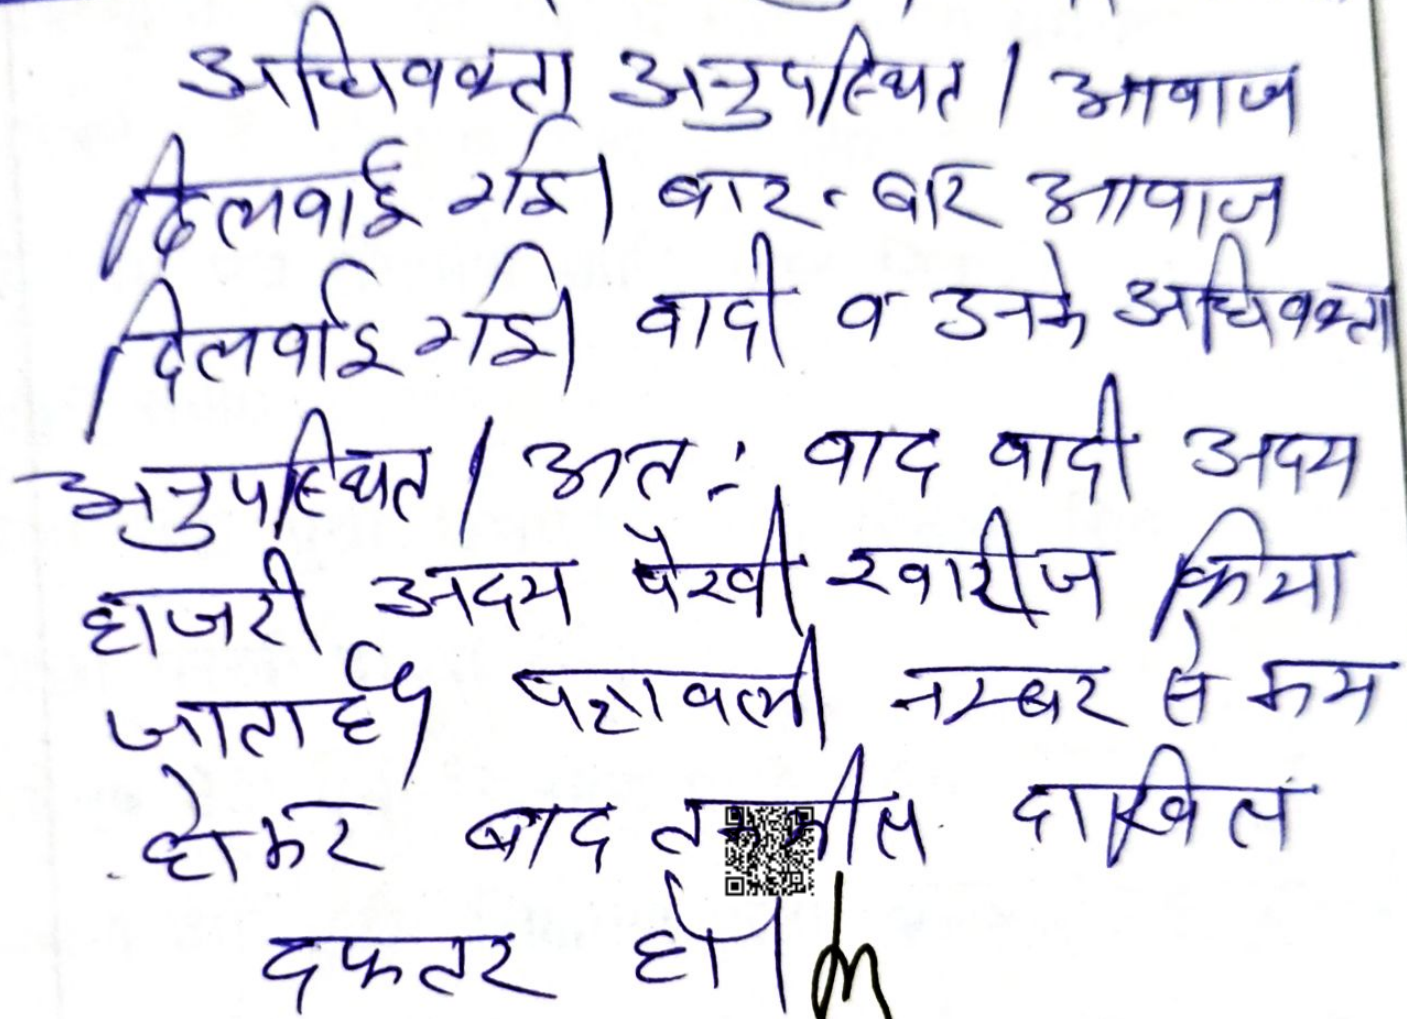 अधिवक्ता अनुपस्थित। आवाज
दिलवाई गई। बार-बार आवाज
दिलवाई गई। वादी व उनके अधिवक्ता
अनुपस्थित। अतः वाद वादी अदम
हाजरी अदम पैरवी खारीज किया
जाता है। पत्रावली नम्बर से कम
होकर बाद तकमील दाखिल
दफतर हो।